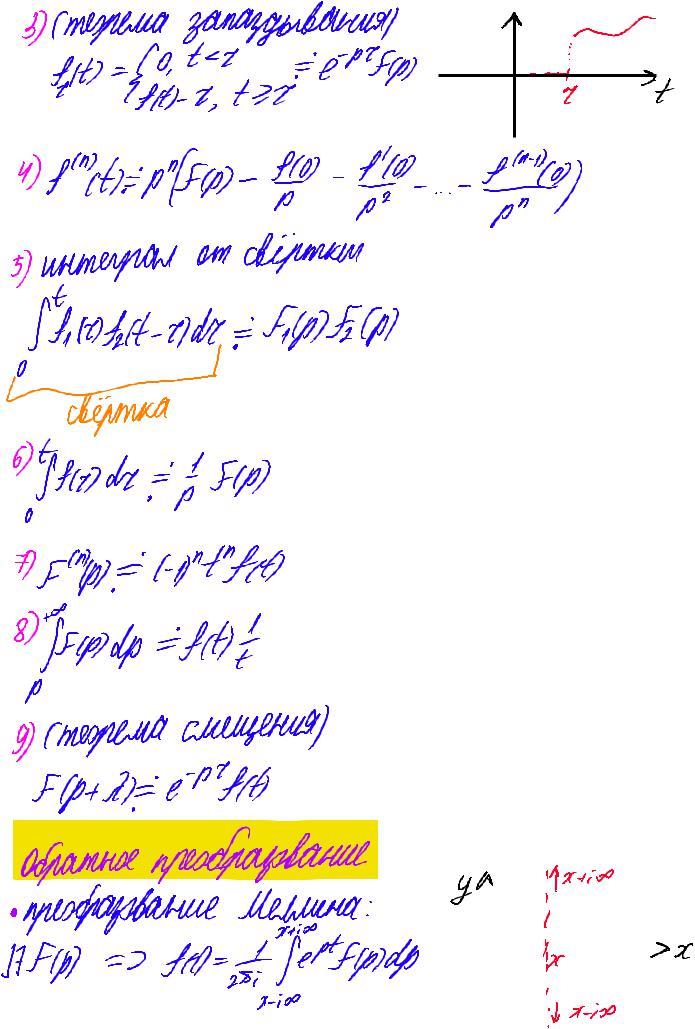 3) (теорема запаздывания)
f_τ(t) = { 0, t < τ
f(t) - τ, t ≥ τ ≓ e^{-pτ} F(p)
τ
t
4) f^{(n)}(t) ≓ p^n (F(p) - f(0)/p - f'(0)/p^2 - ... - f^{(n-1)}(0)/p^n)
5) интеграл от свёртки
∫_0^t f_1(τ) f_2(t-τ) dτ ≓ F_1(p) F_2(p)
свёртка
6) ∫_0^t f(τ) dτ ≓ 1/p F(p)
7) F^{(n)}(p) ≓ (-1)^n t^n f(t)
8) ∫_p^{+∞} F(p) dp ≓ f(t) 1/t
9) (теорема смещения)
F(p+λ) ≓ e^{-pτ} f(t)
Обратное преобразвание
• преобразвание Меллина:
F(p) => f(t) = 1/2πi ∫_{x-i∞}^{x+i∞} e^{pt} F(p) dp
y
x+i∞
x
> x
x-i∞